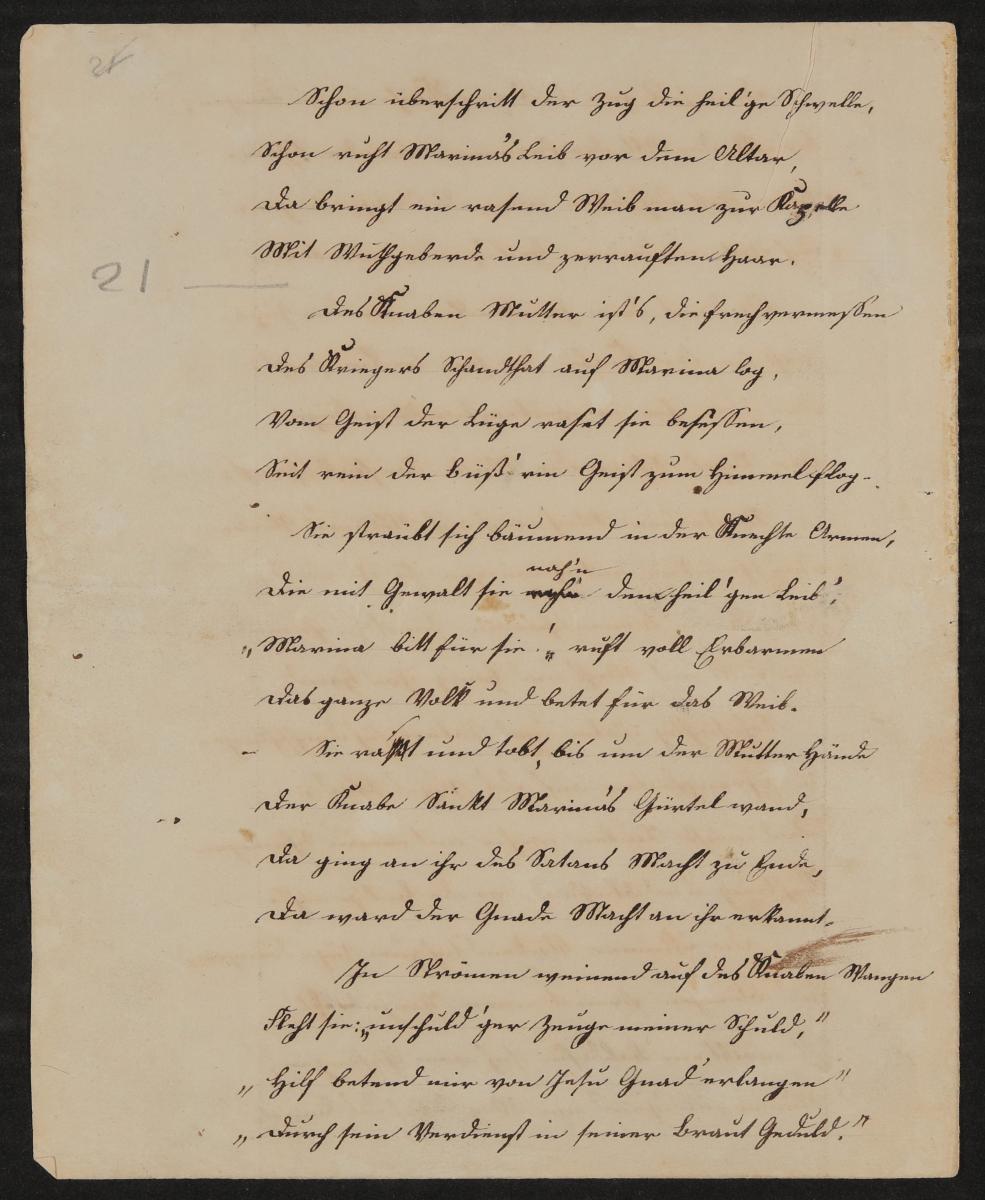 21
Schon überschritt der Zug die heil'ge Schwelle,
Schon ruht Marina's Leib vor dem Altar,
Da bringt ein rasend Weib man zur Kapelle
Mit Wuthgeberde und zerrauften Haar.
21
Des Knaben Mutter ist's, die frech vermessen
Des Kriegers Schandthat auf Marina log,
Vom Geist der Lüge raset sie besessen,
Seit rein der Büß'rin Geist zum Himmel flog -
Sie sträubt sich bäumend in der Knechte Armen,
nah'n
Die mit Gewalt sie dem heil'gen Leib';
„Marina bitt für sie!" ruft voll Erbarmen
Das ganze Volk und betet für das Weib.
- Sie rast und tobt, bis um der Mutter Hände
Der Knabe Sankt Marina's Gürtel wand,
Da ging an ihr des Satans Macht zu Ende,
Da ward der Gnade Macht an ihr erkannt.
In Strömen weinend auf des Knaben Wangen
Fleht sie: „unschuld'ger Zeuge meiner Schuld,"
„Hilf betend mir von Jesu Gnad' erlangen"
„Durch sein Verdienst in seiner Braut Geduld."